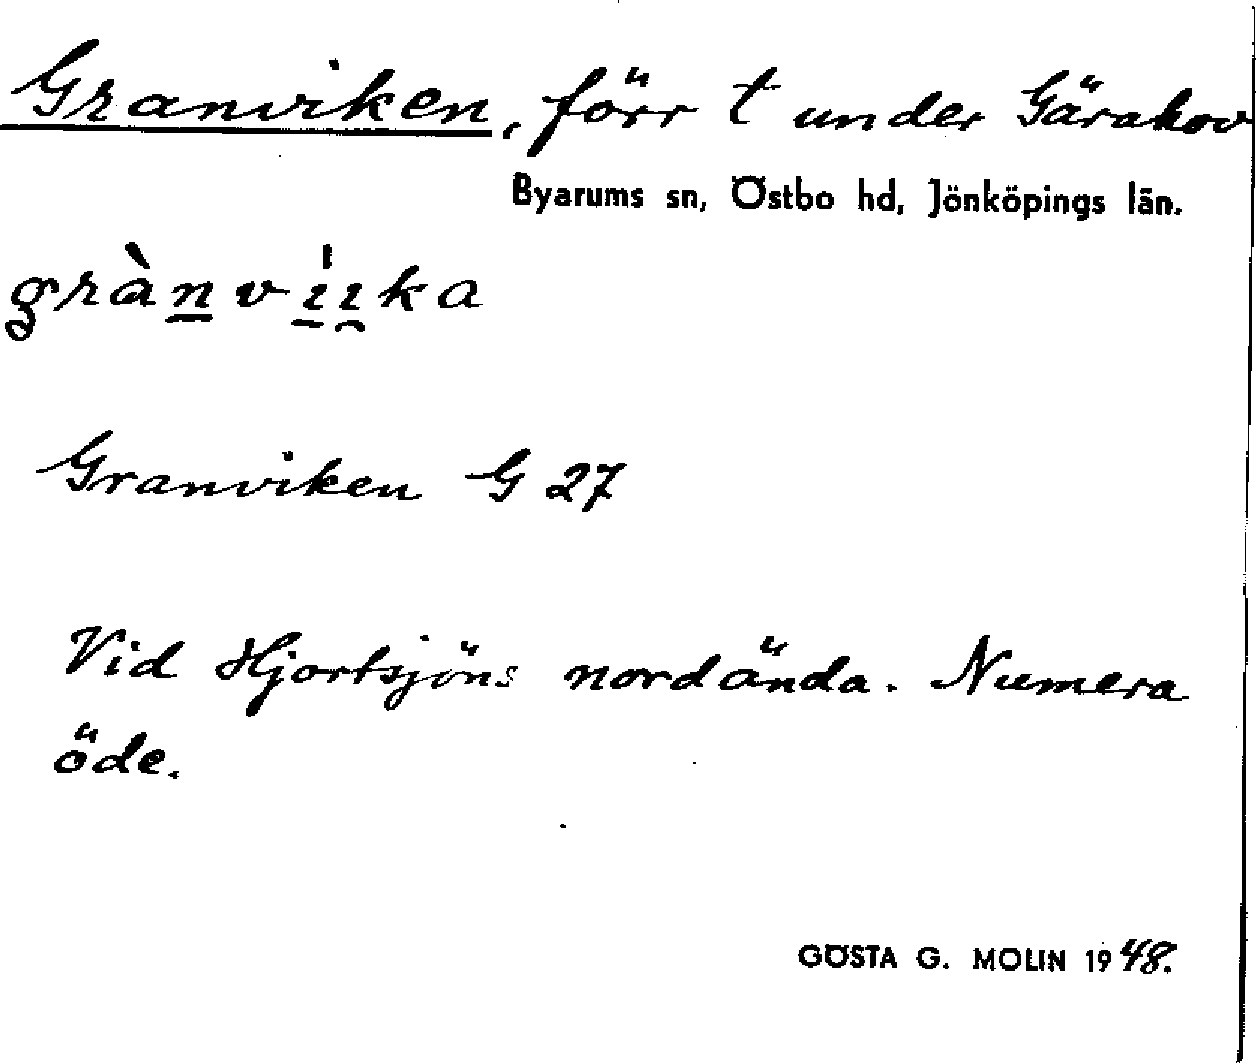 Granviken, förr t under Gärahov
Byarums sn, Östbo hd, Jönköpings län.
grànvı̍ıka
Granviken G 27
Vid Hjortsjöns nordända. Numera
öde.
GÖSTA G. MOLIN 1948.